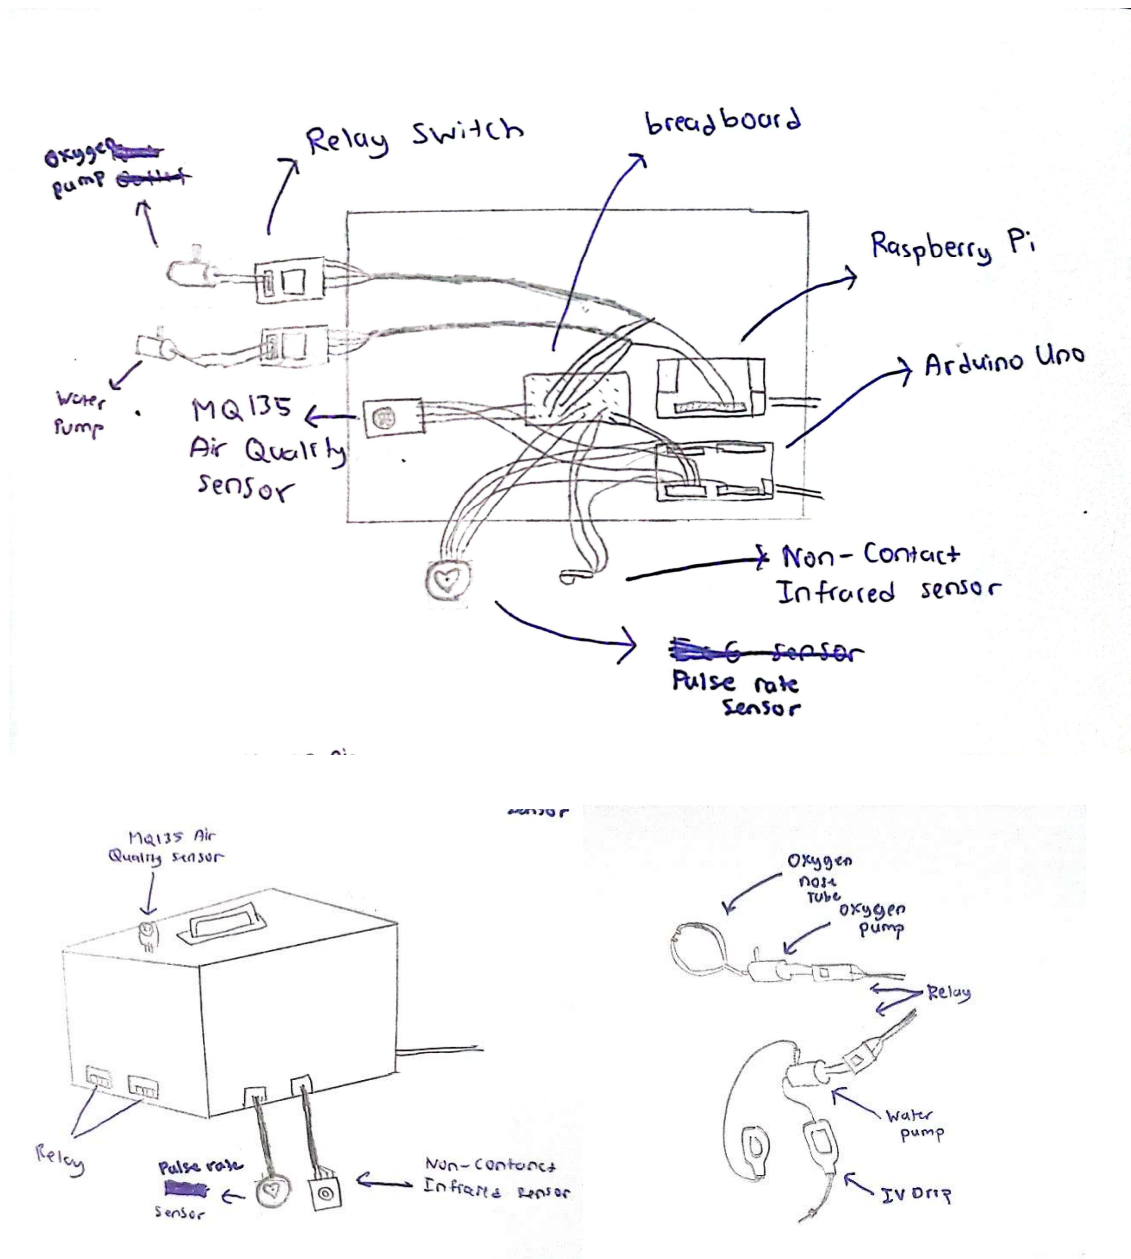 Relay Switch
breadboard
Oxygen
pump
Raspberry Pi
Arduino Uno
Water
Pump
MQ135
Air Quality
sensor
Non-Contact
Infrared sensor
sensor
Pulse rate
sensor
sensor
MQ135 Air
Quality sensor
Relay
Pulse rate
sensor
Non-Contanct
Infrared sensor
Oxygen
nose
Tube
Oxygen
pump
Relay
Water
pump
IV Drip